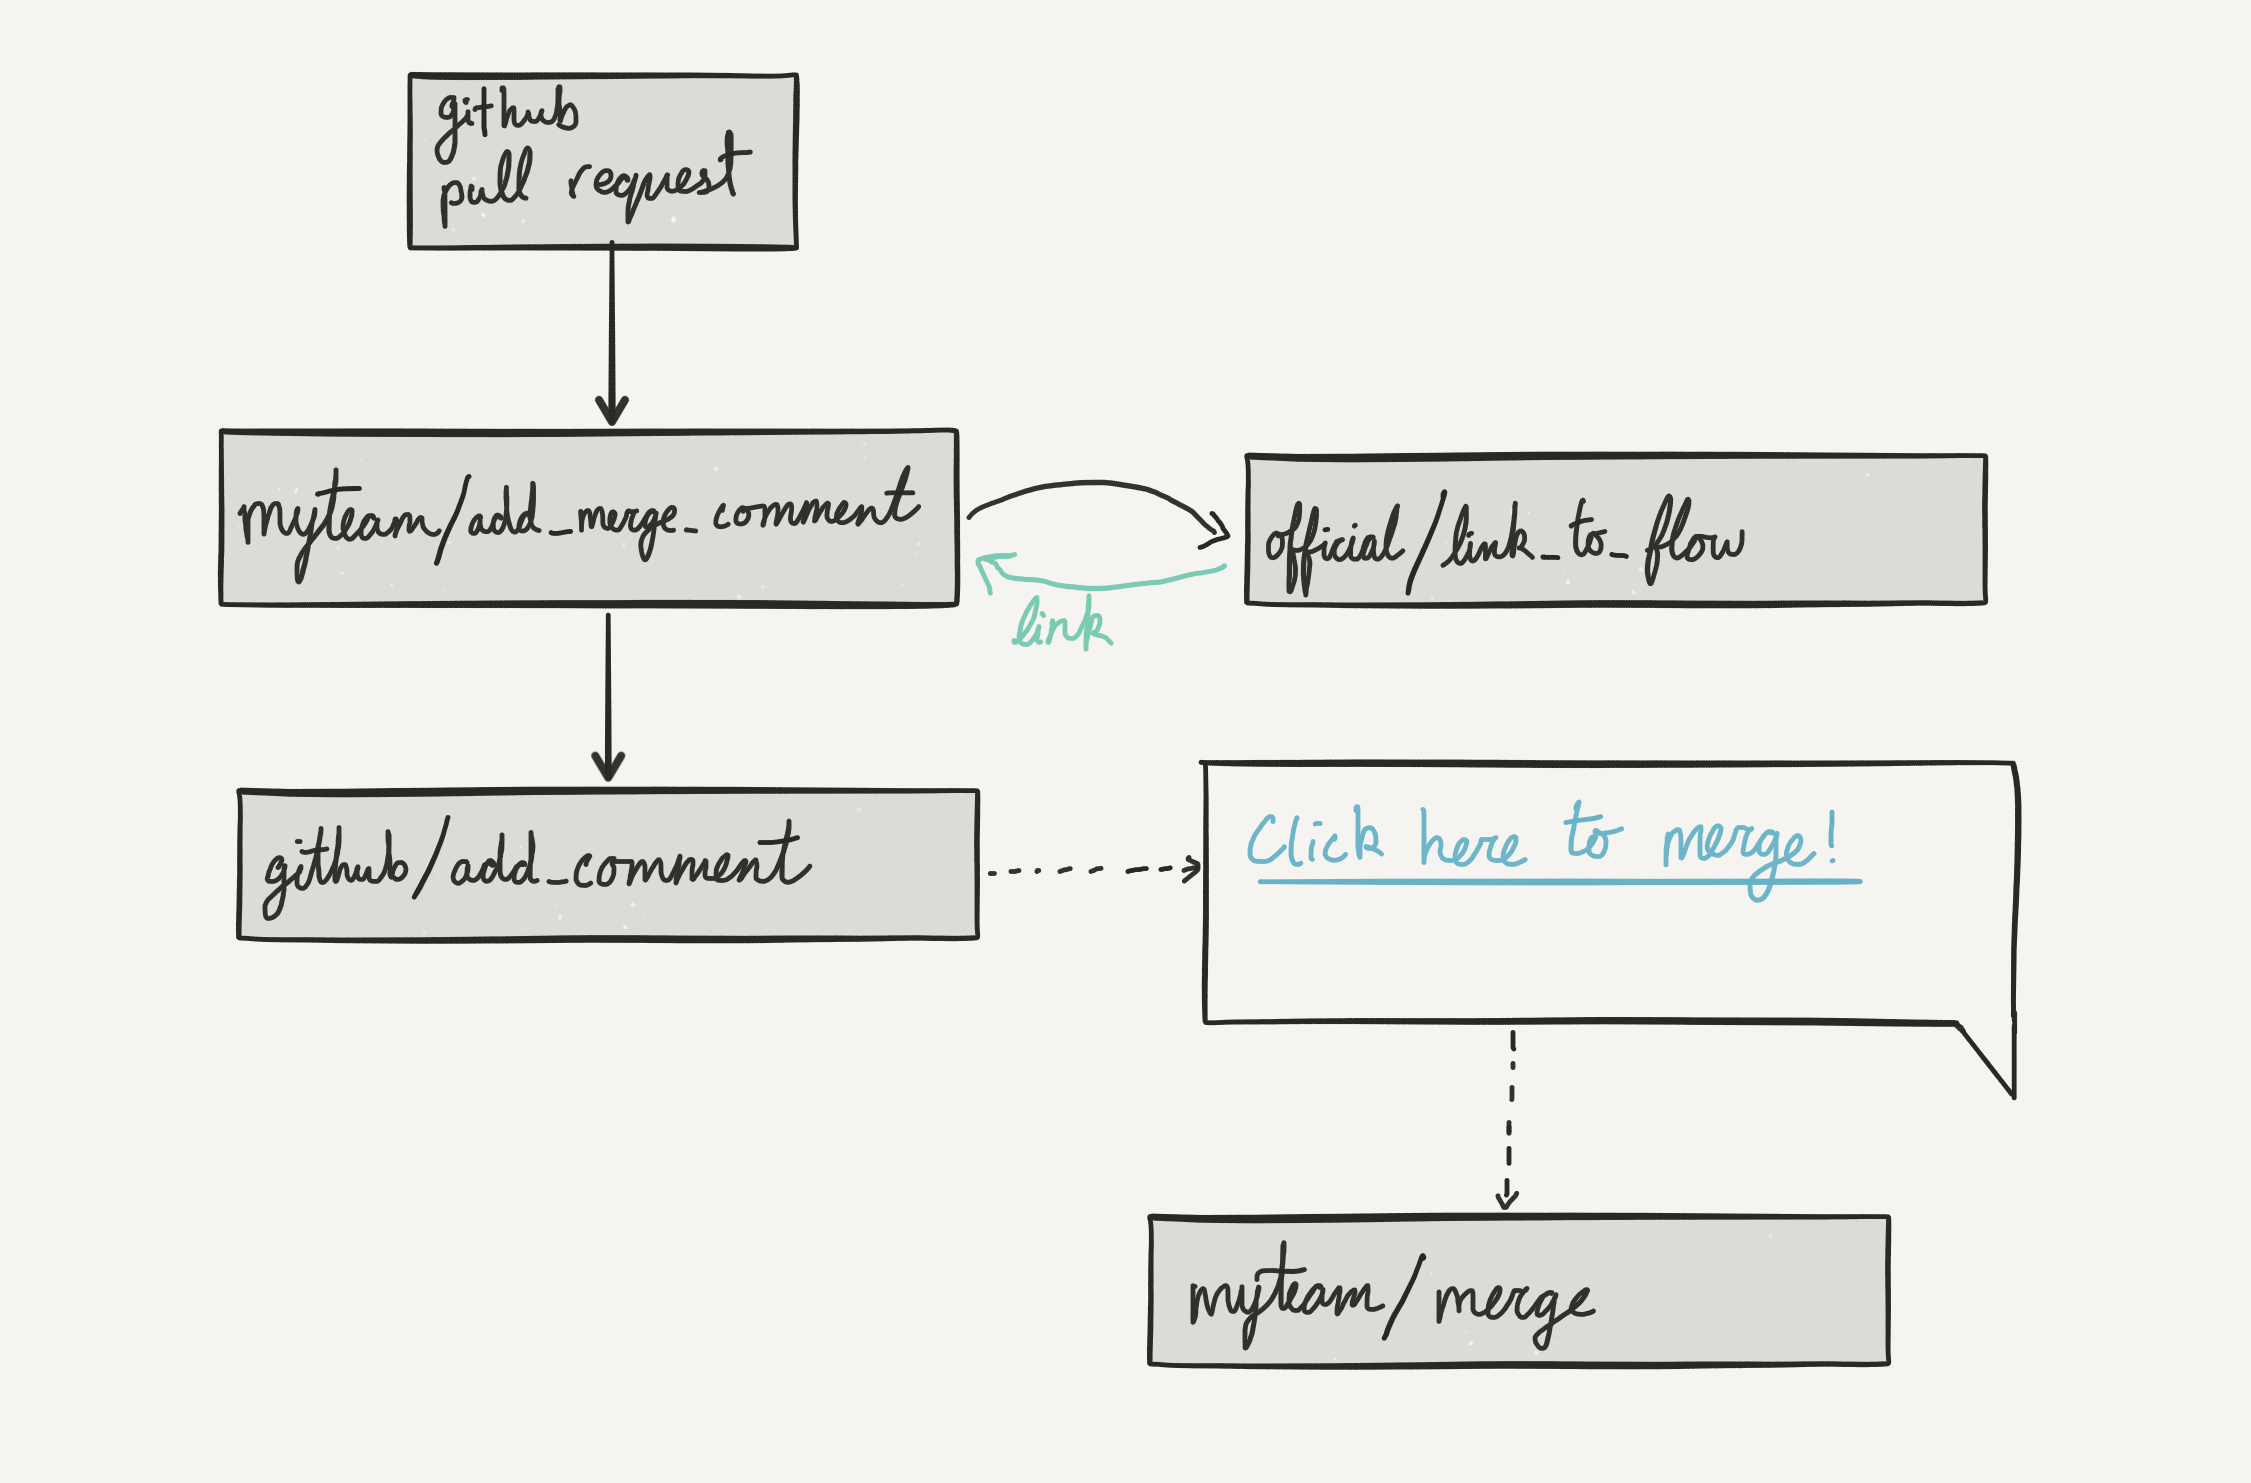 github
pull request
myteam/add_merge_comment
official/link_to_flow
link
github/add_comment
Click here to merge!
myteam/merge